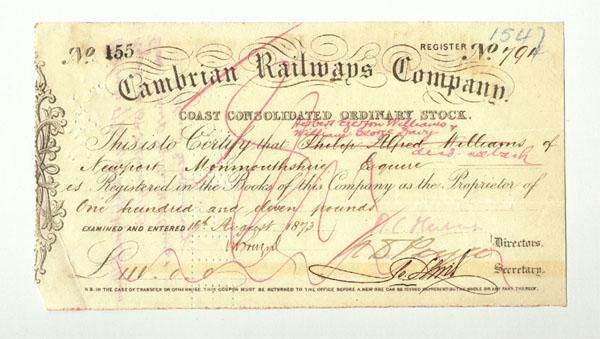 1547
No 155 REGISTER No 794
Cambrian Railways Company.
COAST CONSOLIDATED ORDINARY STOCK.
Herbert Egerton Williams &
William George
This is to Certify that Philip Alfred Williams of
Newport Monmouthshire Esquire dead
is Registered in the Books of this Company as the Proprietor of
One hundred and eleven pounds
EXAMINED AND ENTERED 19th August 1873
Directors.
£111.0.0 Secretary.
N.B. IN THE CASE OF TRANSFER OR OTHERWISE, THIS COUPON MUST BE RETURNED TO THE OFFICE BEFORE A NEW ONE CAN BE ISSUED REPRESENTING THE WHOLE OR ANY PART THEREOF.